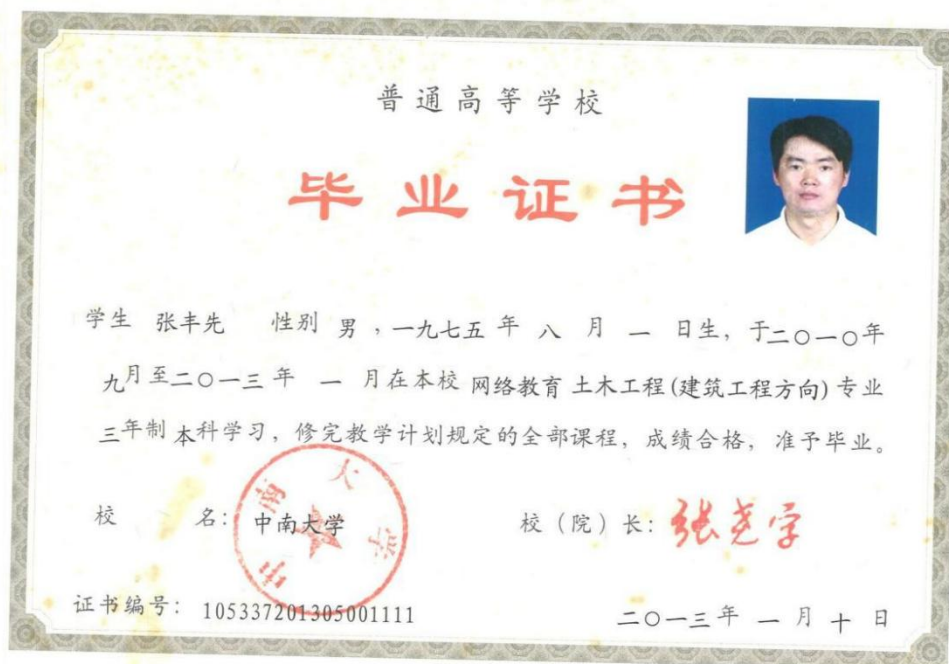 普通高等学校
毕业证书
学生 张丰先 性别 男 ，一九七五 年 八 月 一 日生，于二〇一〇年
九月至二〇一三 年 一 月在本校 网络教育 土木工程(建筑工程方向) 专业
三年制 本科学习，修完教学计划规定的全部课程，成绩合格，准予毕业。
校 名：中南大学 校（院）长：张尧学
中南大学
证书编号：105337201305001111 二〇一三 年 一 月 十 日